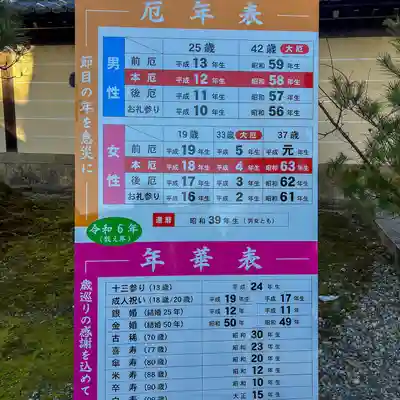 厄年表
節目の年を息災に
25歳 42歳 大厄
男性
前厄 平成13年生 昭和59年生
本厄 平成12年生 昭和58年生
後厄 平成11年生 昭和57年生
お礼参り 平成10年生 昭和56年生
19歳 33歳 大厄 37歳
女性
前厄 平成19年生 平成5年生 平成元年生
本厄 平成18年生 平成4年生 昭和63年生
後厄 平成17年生 平成3年生 昭和62年生
お礼参り 平成16年生 平成2年生 昭和61年生
還暦 昭和39年生(男女とも)
令和6年
(数え年)
年華表
歳巡りの感謝を込めて
十三参り(13歳) 平成24年生
成人祝い(18歳/20歳) 平成19年生 平成17年生
銀婚(結婚25年) 平成12年 平成11年
金婚(結婚50年) 昭和50年 昭和49年
古稀(70歳) 昭和30年生
喜寿(77歳) 昭和23年生
傘寿(80歳) 昭和20年生
米寿(88歳) 昭和12年生
卒寿(90歳) 昭和10年生
大正15年生